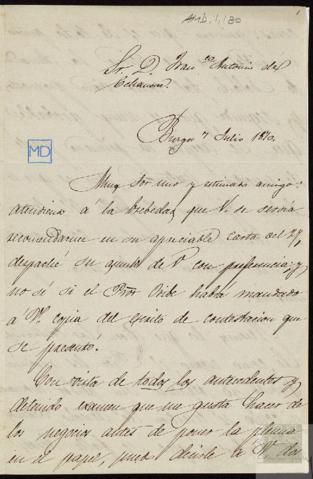 AMD. I, 180
Sr. D. Fran.co Antonio de
Echanove.
Burgos 7 Julio 1870.
MD
Muy Sor mio y estimado amigo:
atendiendo á la brebedad que V. se servia
recomendarme en su apreciable carta del 27,
despaché su asunto de V. con preferencia y
no sé si el Pror Oribe habrá mandado
á V. copia del escrito de contestacion que
se presentó.
Con vista de todos los antecedentes y
detenido examen que me gusta hacer de
los negocios antes de poner la pluma
en el papel, puedo decirle á V. los